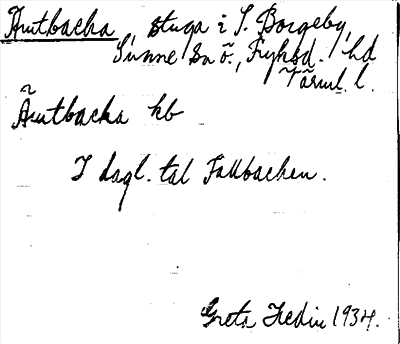 Amtbacka, stuga i S. Borgeby,
Sunne sn ö., Fryksd. hd
Värml. l.
Amtbacka kb
I dagl. tal Fallbacken.
Greta Hedin 1934.